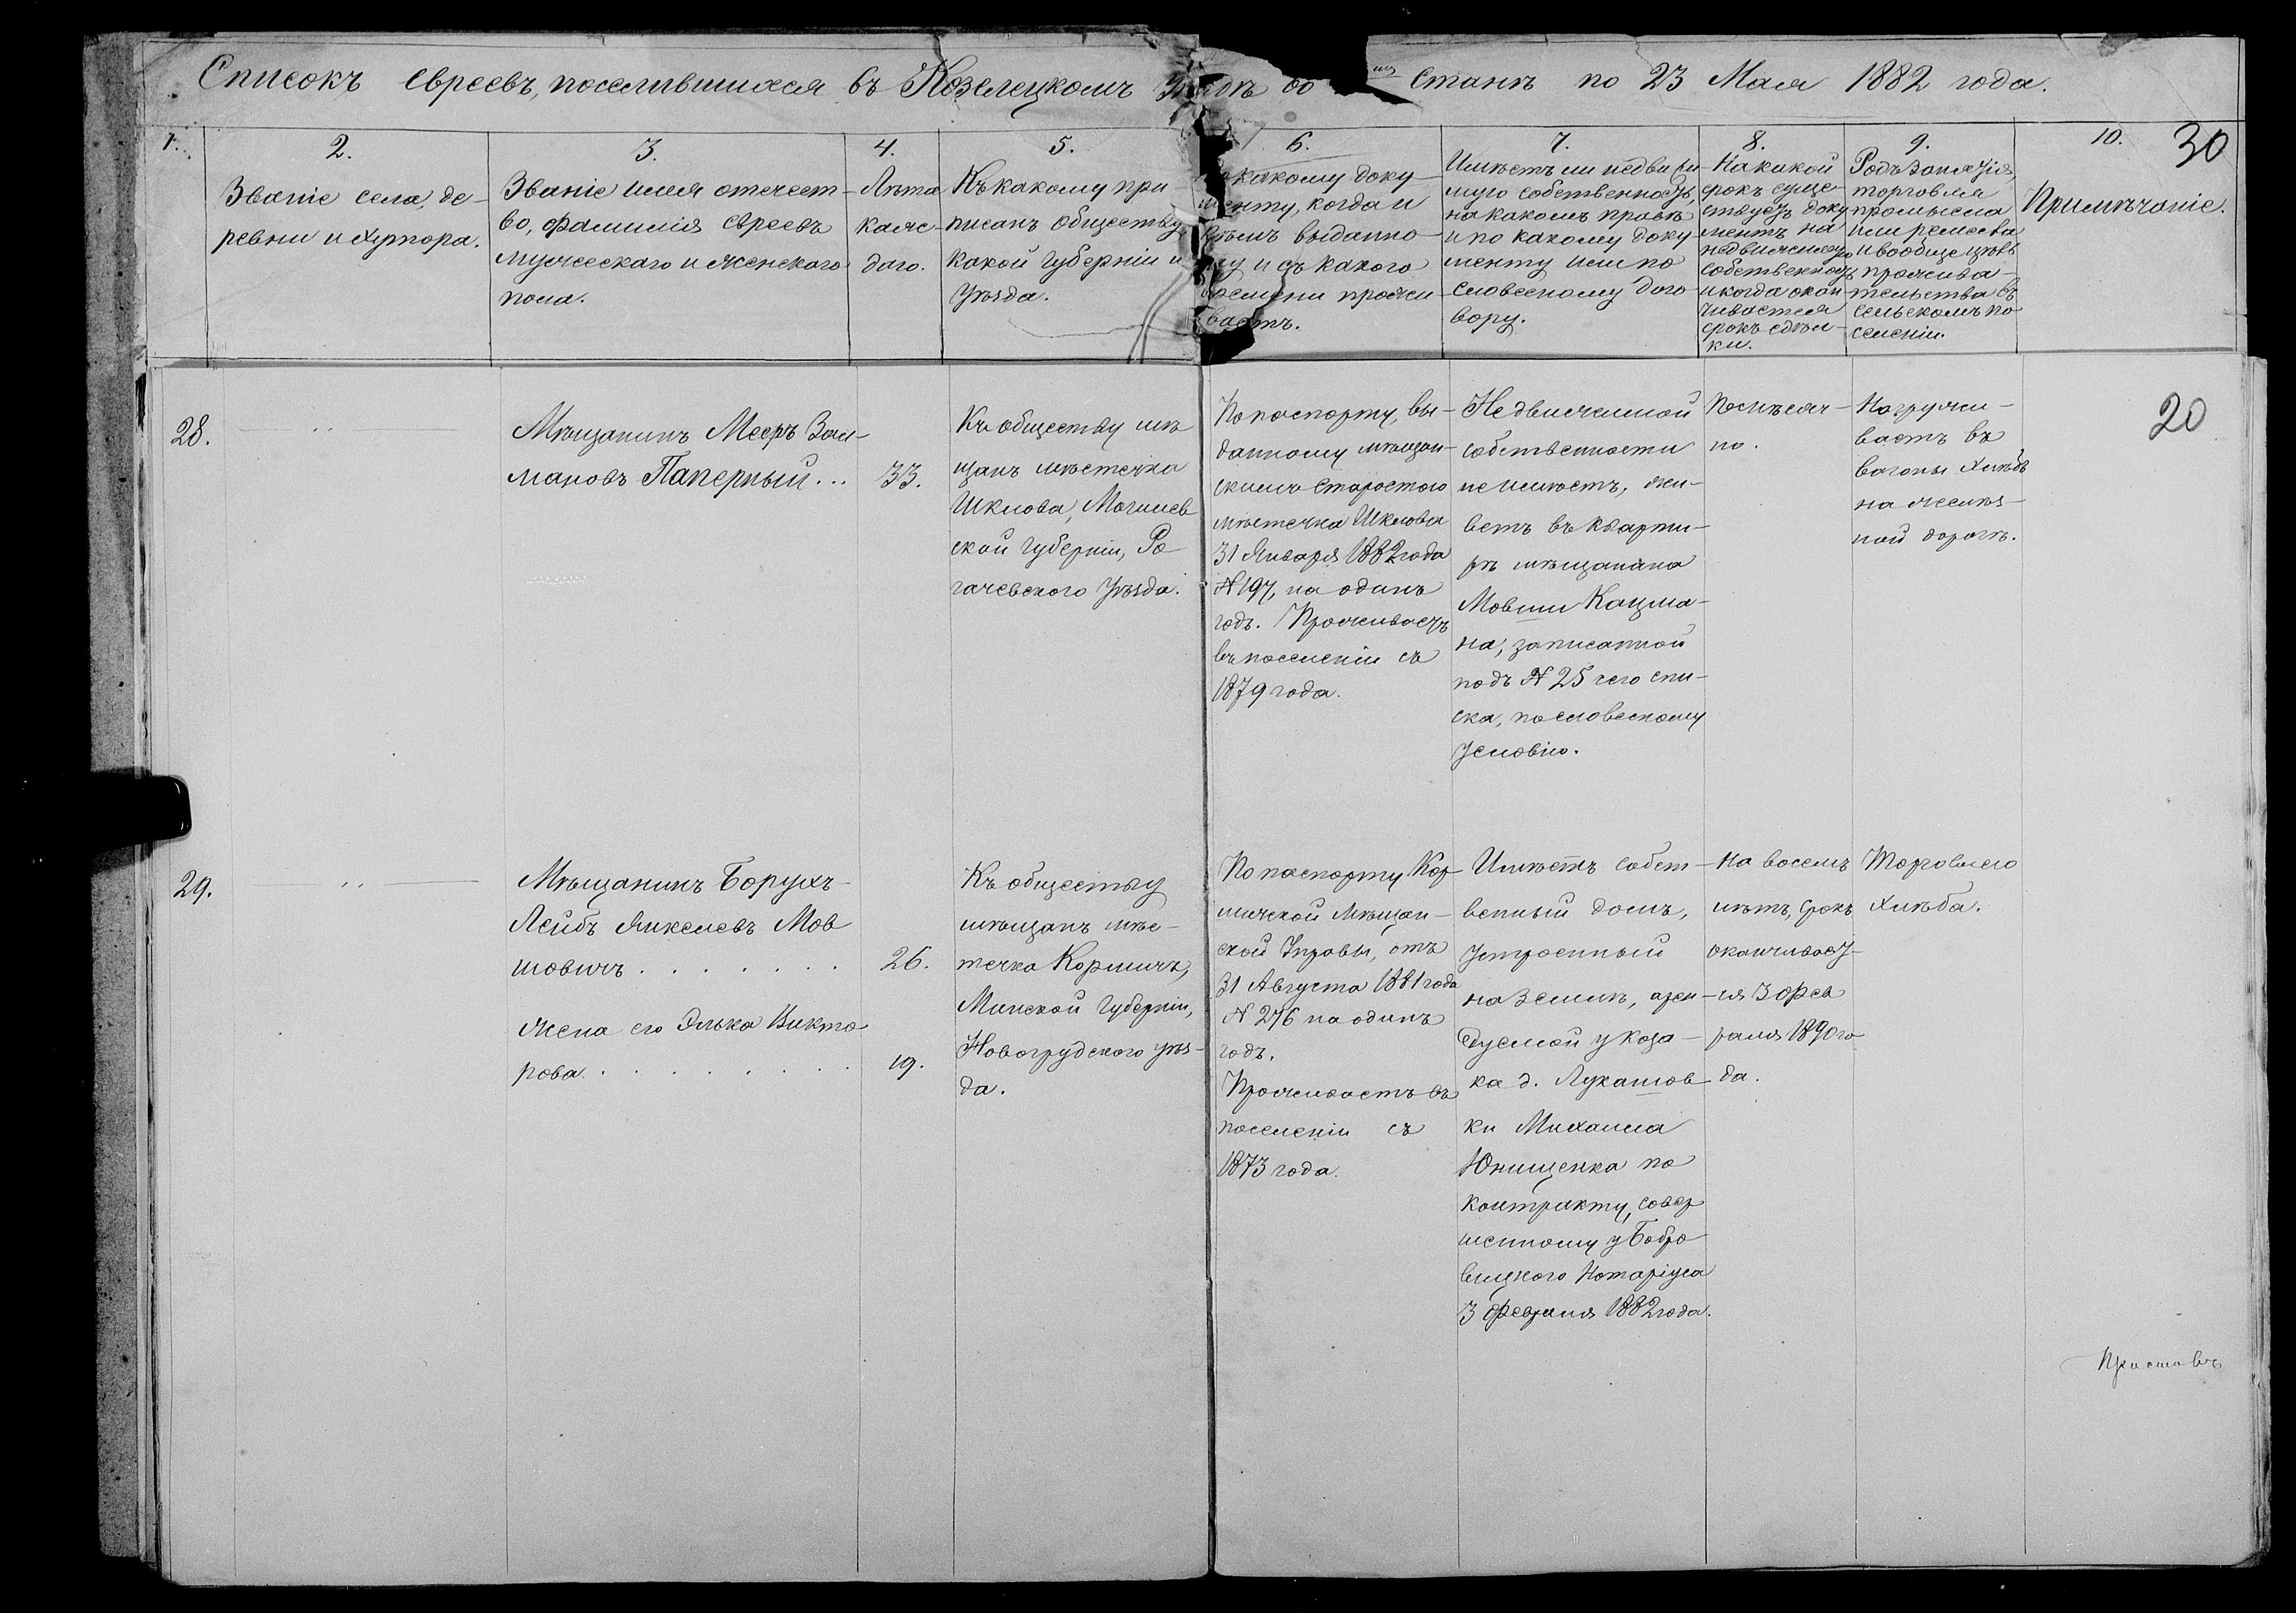 Списокъ евреевъ, поселившихся въ Козелецкомъ во станѣ по 23 Мая 1882 года.
1.
2.
Званіе села, де-
ревни и хутора.
3.
Званіе имя отечест-
во, фамилія евреевъ
мужескаго и женскаго
пола.
4.
Лѣта
каж-
даго.
5.
Къ какому при-
писанъ обществу
какой губерніи и
уѣзда.
6.
какому доку-
менту, когда и
кѣмъ выданно-
му и съ какого
времени прожи-
ваетъ.
7.
Имѣетъ ли недвижи
мую собственность,
на какомъ правѣ
и по какому доку-
менту или по
словесному дого-
вору.
8.
На какой
срокъ суще-
ствуетъ доку
ментъ на
недвижимую
собственность
и когда окан-
чивается
срокъ сдѣл-
ки.
9.
Родъ занятія,
торговля
промысла
или ремесла
и вообще цѣль
прожива-
тельства въ
сельскомъ по
селеніи.
10.
Примѣчаніе.
30
20
28.
Мѣщанинъ Мееръ Зал-
мановъ Паперный...
33.
Къ обществу мѣ
щанъ мѣстечка
Шклова, Могилев
ской губерніи, Ро-
гачевского уѣзда.
По паспорту, вы-
данному мѣщан-
скимъ старостою
мѣстечка Шклова
31 Января 1882 года
№ 197, на одинъ
годъ. Проживаетъ
въ поселеніи съ
1879 года.
Недвижимой
собственности
не имѣетъ, жи-
ветъ въ кварти-
рѣ мѣщанина
Мовши Кацма-
на, записанной
подъ № 25 сего спи-
ска, по словесному
условію.
Помѣсяч-
но.
Нагружи-
ваетъ въ
вагоны хлѣбъ
на желѣз-
ной дорогѣ.
29.
Мѣщанинъ Борухъ-
Лейбъ Янкелевъ Мов
шовичъ . . . . . . .
26.
Жена его Элька Викто
рова . . . . . . . .
19.
Къ обществу
мѣщанъ мѣс-
течка Корлича,
Минской губерніи,
Новогрудского уѣз-
да.
По паспорту Кор
личской Мѣщан-
ской Управы, отъ
31 Августа 1881 года
№ 276 на одинъ
годъ.
Проживаетъ въ
поселеніи съ
1873 года.
Имѣетъ собст-
венный домъ,
устроенный
на землѣ, арен-
дуемой у коза-
ка д. Лукашов-
ки Михаила
Юнищенка по
контракту, совер
шенному у Бобро
вицкого Нотаріуса
3 Февраля 1882 года.
На восемь
лѣтъ, срокъ
оканчивает-
ся 3 фев
раля 1890 го
да.
Торговлею
хлѣба.
Приставъ